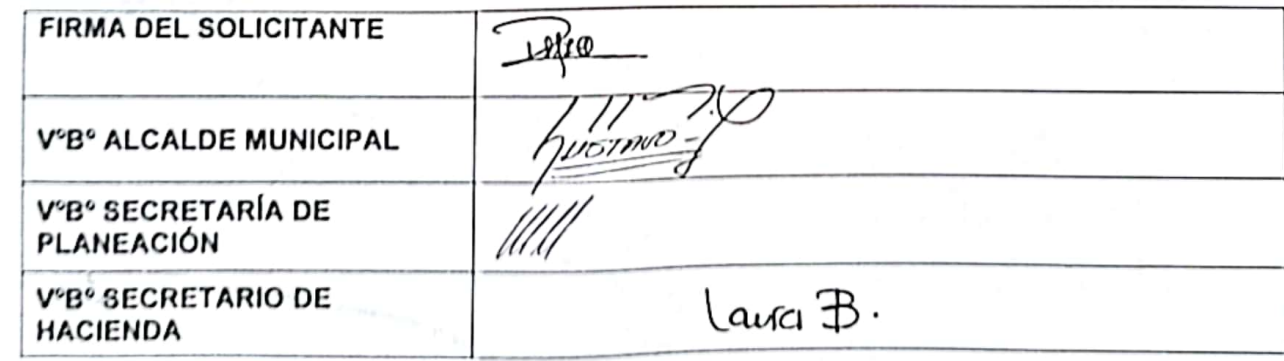 FIRMA DEL SOLICITANTE
V°B° ALCALDE MUNICIPAL
GUSTAVO
V°B° SECRETARÍA DE
PLANEACIÓN
V°B° SECRETARIO DE
HACIENDA
Laura B.